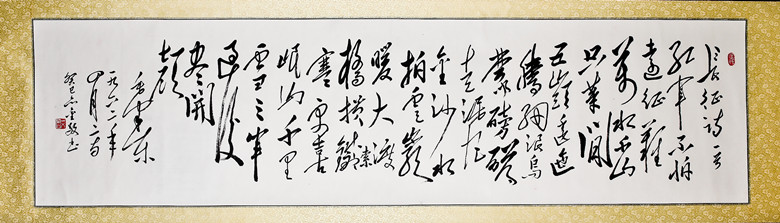 长征诗一首
红军不怕
远征难
万水千山
只等闲
五岭逶迤
腾细浪乌
蒙磅礴
走泥丸
金沙水
拍云崖
暖大渡
桥横铁索
寒更喜
岷山千里
雪三军
过后
尽开
颜
毛泽东
一九六二年
四月二十日
癸巳 书